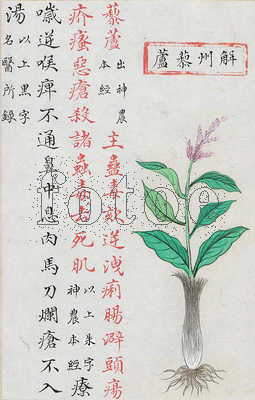 觧州藜蘆
藜蘆出神農本經主蠱毒欬逆洩痢腸澼頭瘍
疥瘙惡瘡殺諸蟲毒去死肌以上朱字神農本經療
噦逆喉痺不通鼻中息肉馬刀爛瘡不入
湯以上黑字名醫所錄
fotoe